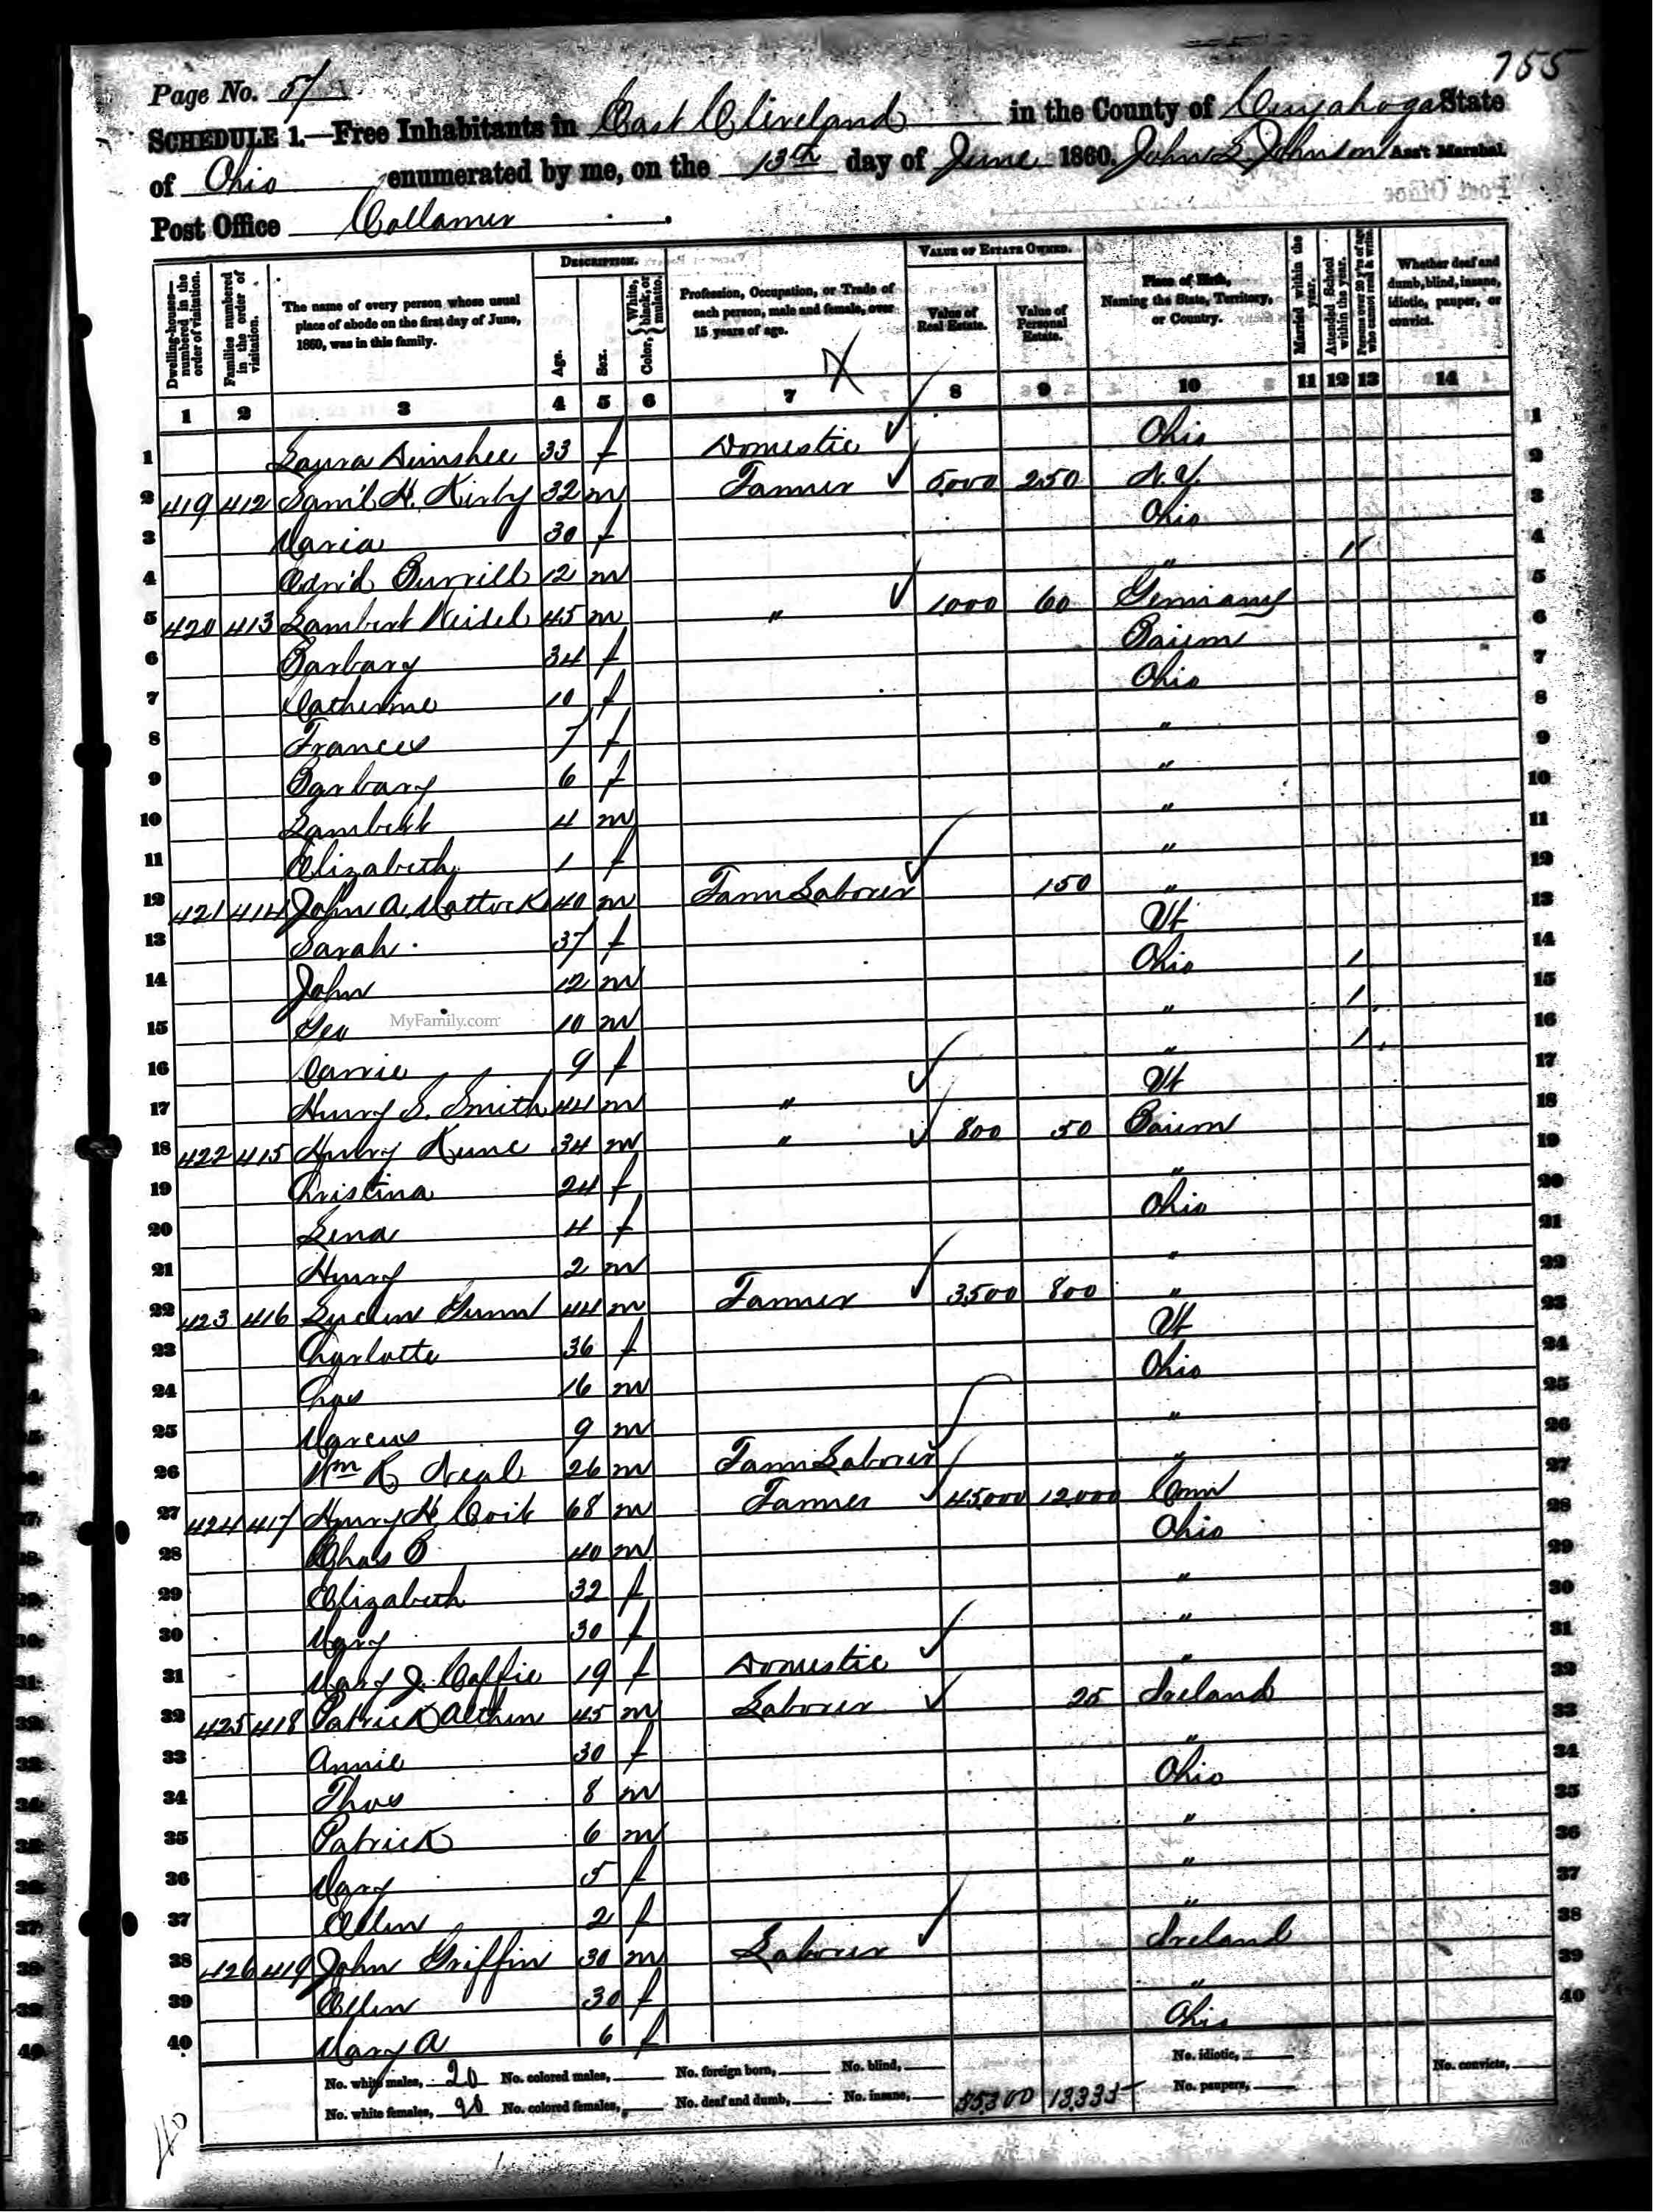 755
Page No. 51
SCHEDULE 1.—Free Inhabitants in East Cleveland in the County of Cuyahoga State
of Ohio enumerated by me, on the 13th day of June 1860. John S. Johnson Ass't Marshal.
Post Office Collamer
Dwelling-houses—numbered in the order of visitation.
Families numbered in the order of visitation.
The name of every person whose usual place of abode on the first day of June, 1860, was in this family.
DESCRIPTION.
Age.
Sex.
Color, { White, black, or mulatto.
Profession, Occupation, or Trade of each person, male and female, over 15 years of age.
VALUE OF ESTATE OWNED.
Value of Real Estate.
Value of Personal Estate.
Place of Birth, Naming the State, Territory, or Country.
Married within the year.
Attended School within the year.
Persons over 20 y'rs of age who cannot read & write.
Whether deaf and dumb, blind, insane, idiotic, pauper, or convict.
1 2 3 4 5 6 7 8 9 10 11 12 13 14
1 Laura 33 f Domestic Ohio 1
2 419 412 Sam'l H. Kirby 32 m Farmer 5,000 250 N.Y. 2
3 Maria 30 f Ohio 3
4 Edw'd Burrill 12 m " 1 4
5 420 413 Lambert 45 m " 1,000 60 Germany 5
6 Barbary 34 f Baiern 6
7 Catherine 10 f Ohio 7
8 Frances 7 f " 8
9 Barbary 6 f " 9
10 Lambert 4 m " 10
11 Elizabeth 1 f " 11
12 421 414 John A. Mattock 40 m Farm Laborer 150 " 12
13 Sarah 37 f Vt 13
14 John 12 m Ohio 1 14
15 Geo MyFamily.com 10 m " 1 15
16 Carrie 9 f " 1 16
17 Henry S. Smith 44 m " Vt 17
18 422 415 Henry Kune 34 m " 800 50 Baiern 18
19 Christina 24 f " 19
20 Lena 4 f Ohio 20
21 Henry 2 m " 21
22 423 416 Lucien Gunn 44 m Farmer 3,500 800 " 22
23 Charlotte 36 f Vt 23
24 Chas 16 m Ohio 24
25 Marcus 9 m " 25
26 Wm R Neal 26 m Farm Laborer " 26
27 424 417 Henry H. Coit 68 m Farmer 45,000 12,000 Conn 27
28 Chas B 40 m Ohio 28
29 Elizabeth 32 f " 29
30 Mary 30 f " 30
31 Mary J. Caffie 19 f Domestic " 31
32 425 418 Patrick 45 m Laborer 25 Ireland 32
33 Annie 30 f " 33
34 Thos 8 m Ohio 34
35 Patrick 6 m " 35
36 Mary 5 f " 36
37 Ellen 2 f " 37
38 426 419 John Griffin 30 m Laborer Ireland 38
39 Ellen 30 f " 39
40 Mary A 6 f Ohio 40
No. white males, 20 No. colored males, No. foreign born, No. blind, No. idiotic,
No. white females, 20 No. colored females, No. deaf and dumb, No. insane, 55,300 13,335 No. paupers, No. convicts,
40